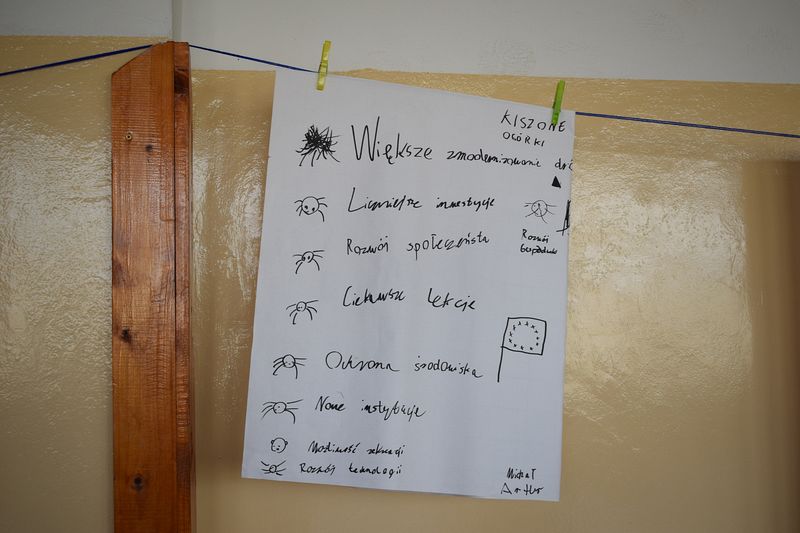 KISZONE
OGÓRKI
Większe zmodernizowanie
Liczniejsze inwestycje
Rozwój
Rozwój społeczeństa
Ciekawsze lekcje
Ochrona środowiska
Nowe instytucje
Możliwość
Rozwój technologii
Michał
Artur